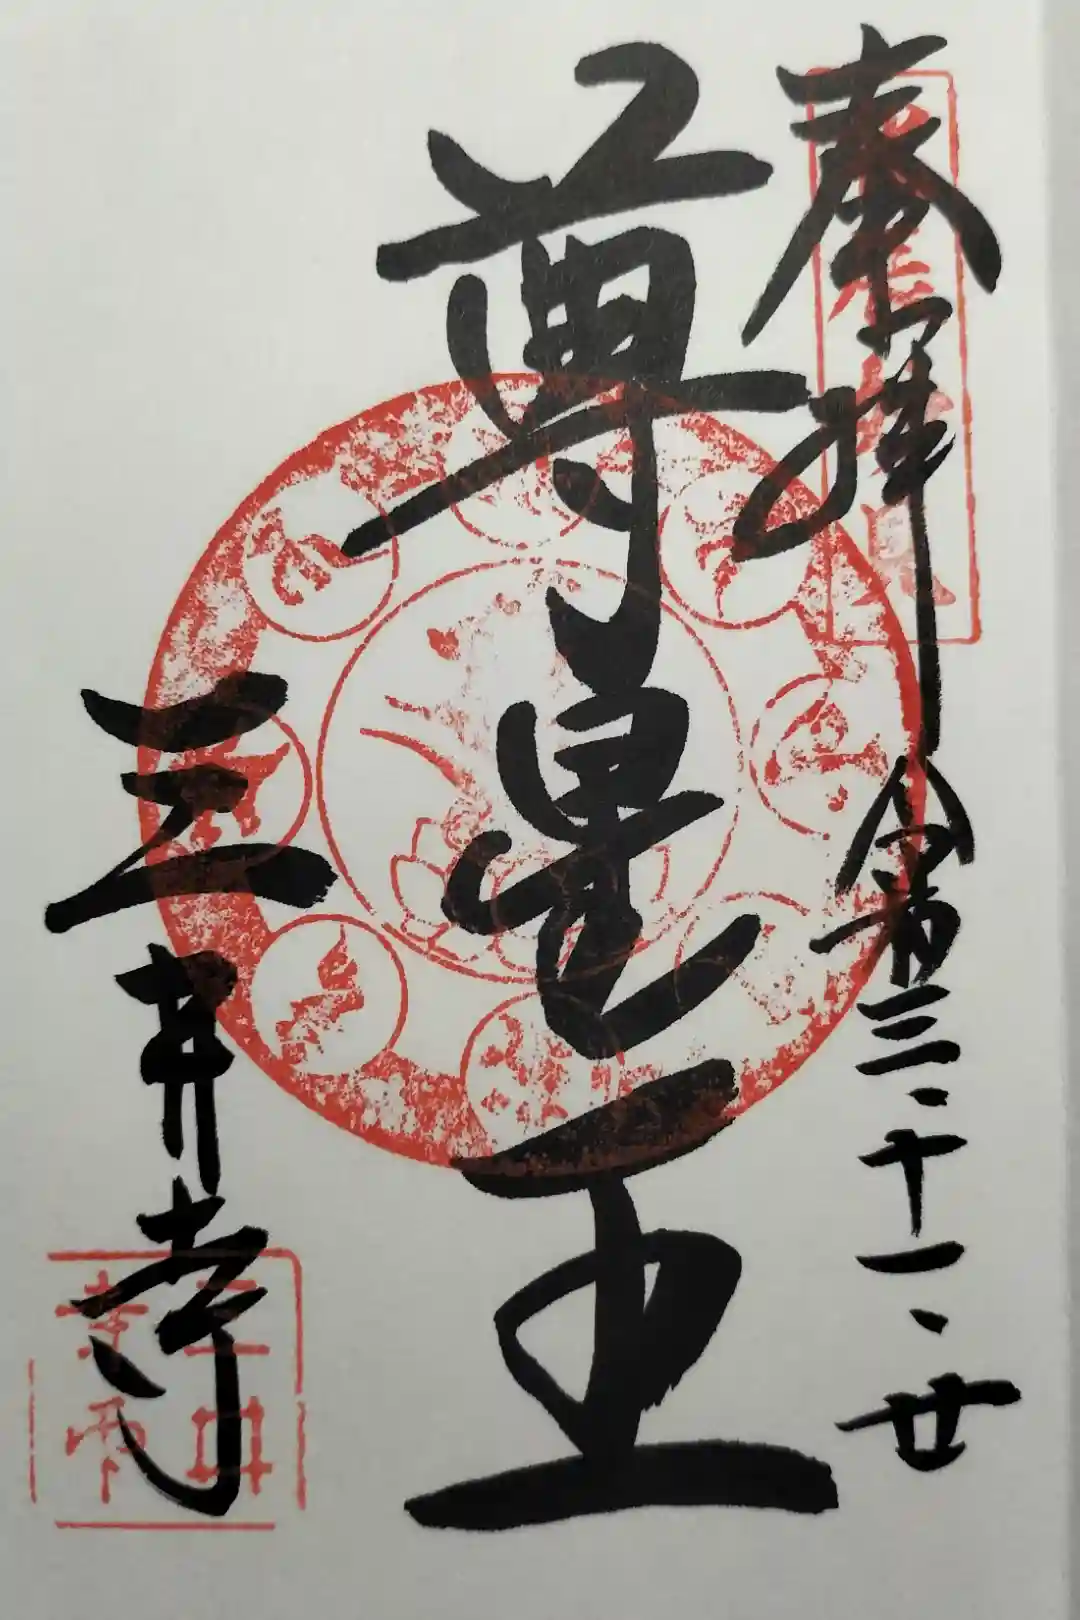 奉拝 令和三・十一・廿
尊星王
三井寺
三井
寺印